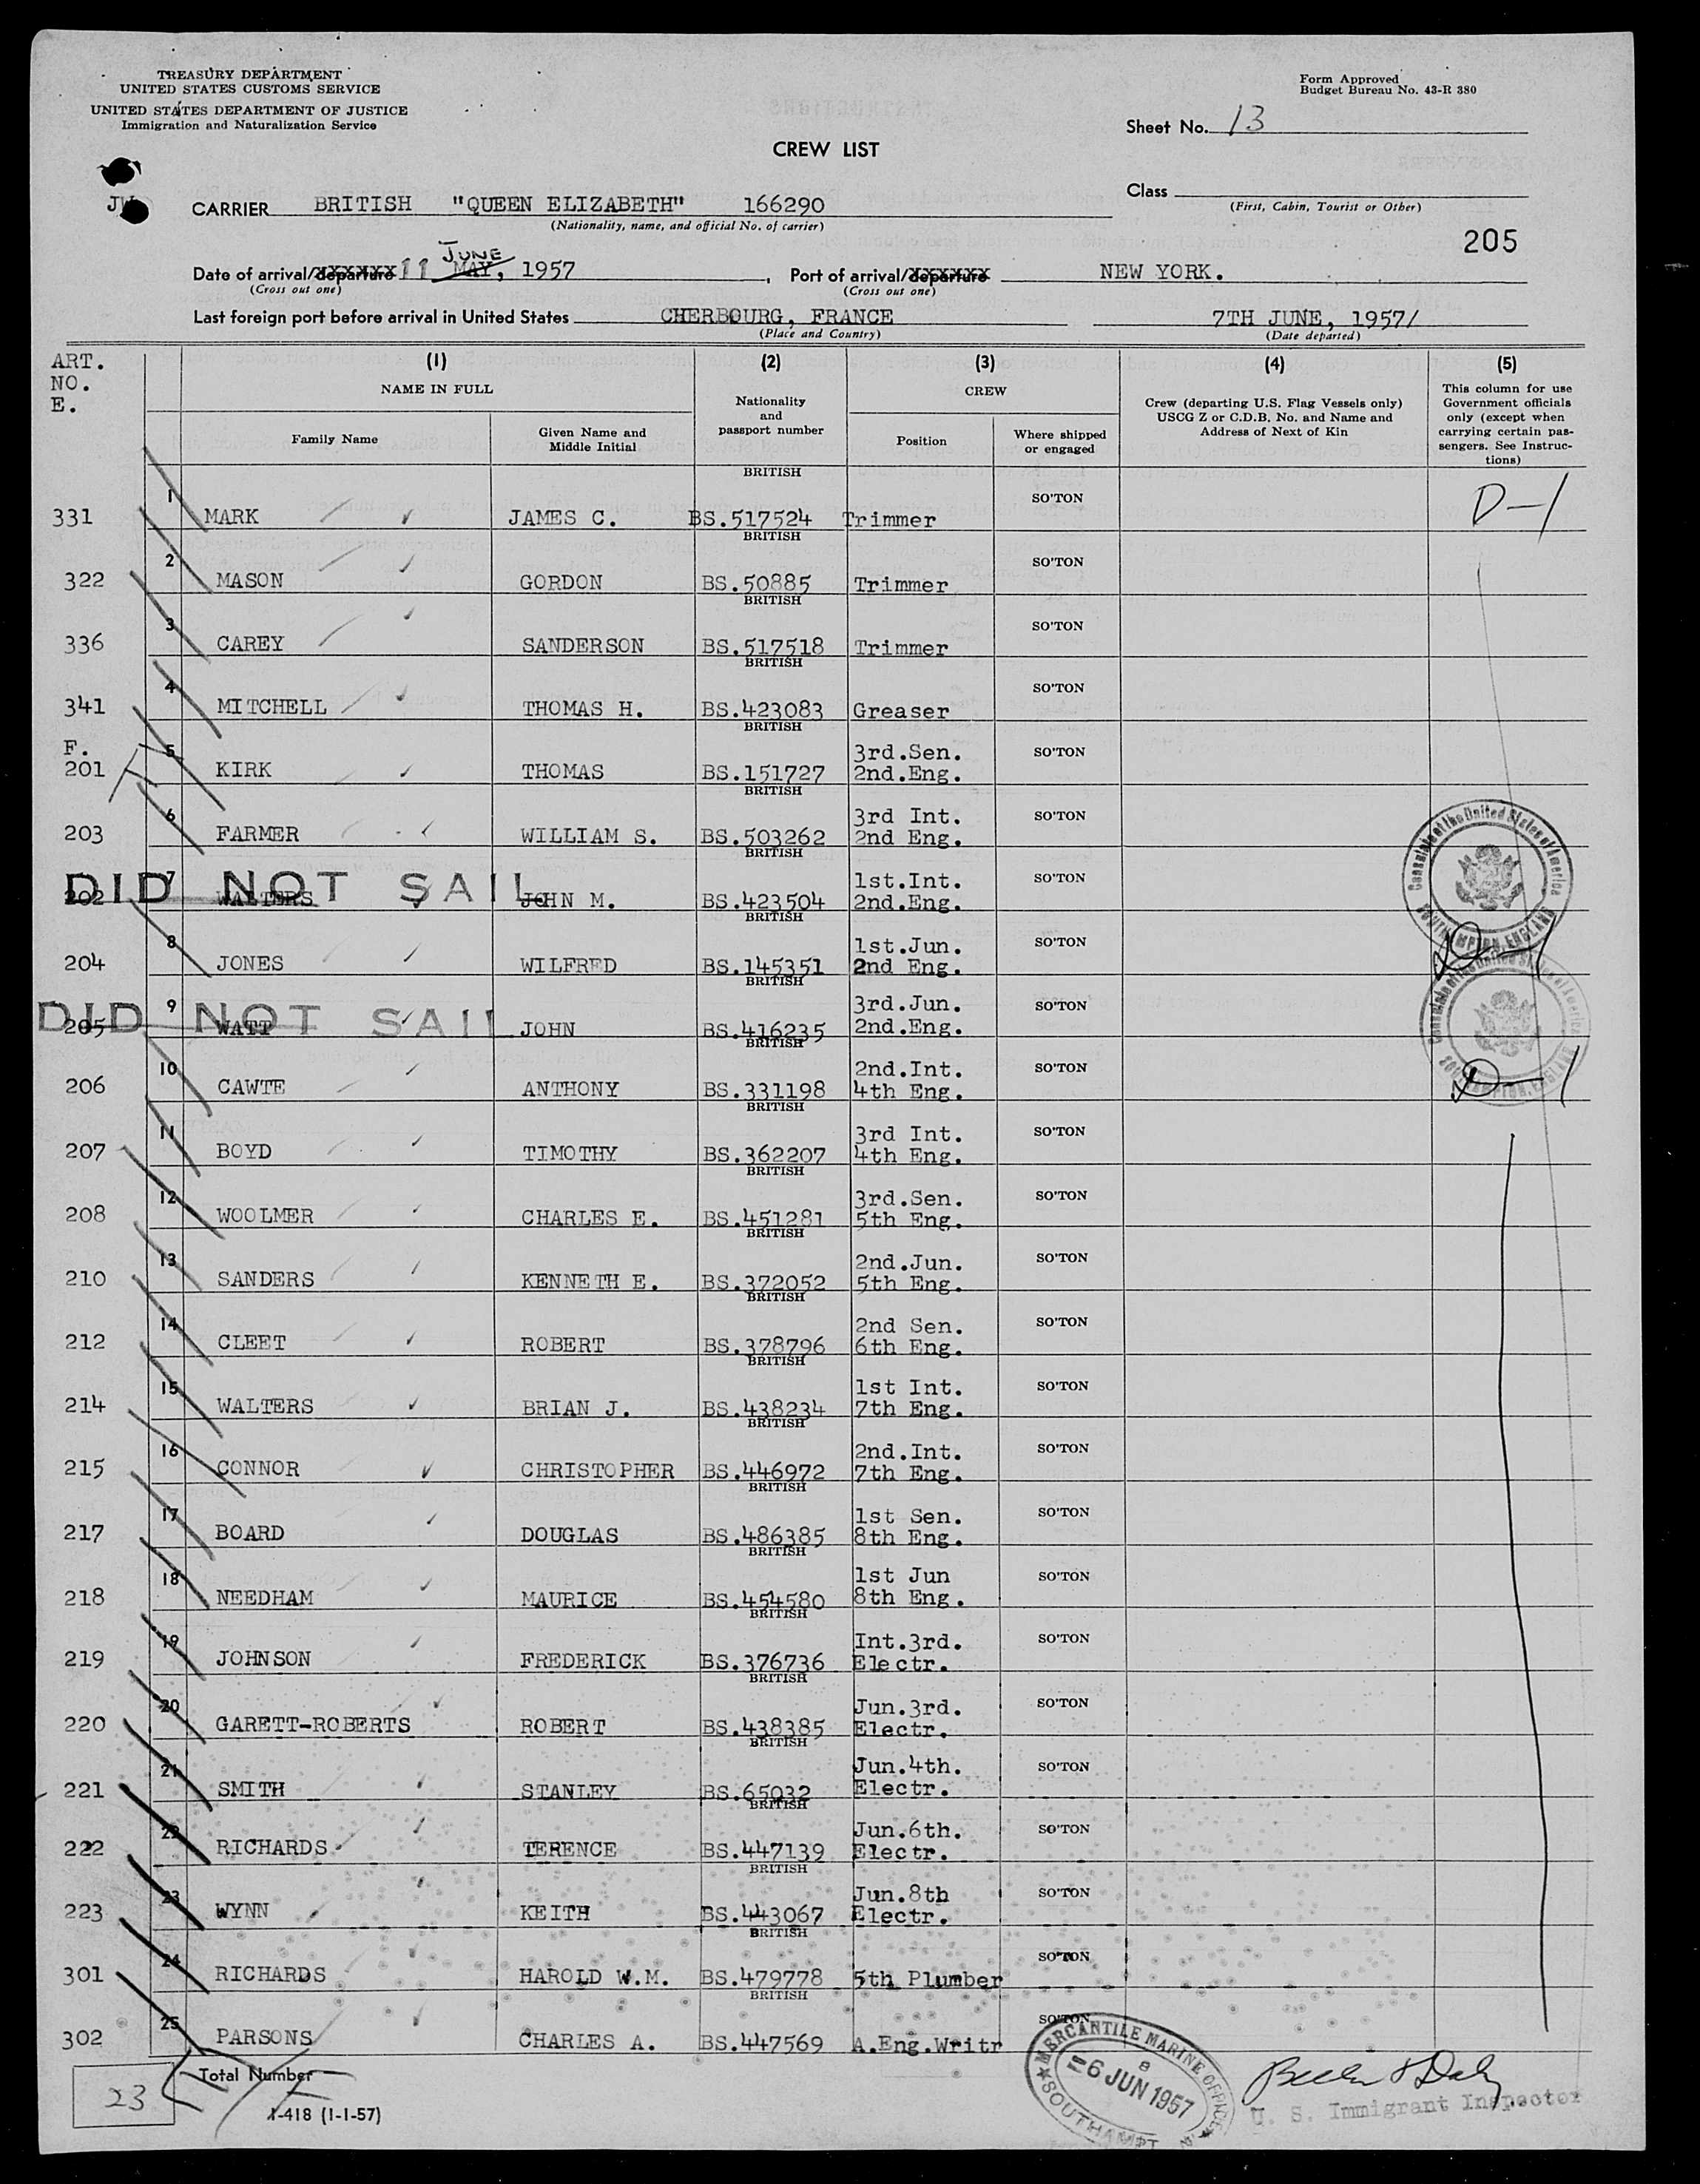 TREASURY DEPARTMENT
UNITED STATES CUSTOMS SERVICE
UNITED STATES DEPARTMENT OF JUSTICE
Immigration and Naturalization Service
Form Approved
Budget Bureau No. 43-R 380
Sheet No. 13
CREW LIST
Class
(First, Cabin, Tourist or Other)
CARRIER BRITISH "QUEEN ELIZABETH" 166290
(Nationality, name, and official No. of carrier)
205
JUNE
Date of arrival/departure 11 MAY, 1957, Port of arrival/departure NEW YORK.
(Cross out one) (Cross out one)
Last foreign port before arrival in United States CHERBOURG, FRANCE 7TH JUNE, 1957/
(Place and Country) (Date departed)
ART. NO. E.
(1) NAME IN FULL
Family Name
Given Name and Middle Initial
(2) Nationality and passport number
(3) CREW
Position
Where shipped or engaged
(4) Crew (departing U.S. Flag Vessels only) USCG Z or C.D.B. No. and Name and Address of Next of Kin
(5) This column for use Government officials only (except when carrying certain passengers. See Instructions)
331 1 MARK JAMES C. BRITISH BS.517524 Trimmer SO'TON D-1
322 2 MASON GORDON BRITISH BS.50885 Trimmer SO'TON
336 3 CAREY SANDERSON BRITISH BS.517518 Trimmer SO'TON
341 4 MITCHELL THOMAS H. BRITISH BS.423083 Greaser SO'TON
F.
201 5 KIRK THOMAS BRITISH BS.151727 3rd.Sen. 2nd.Eng. SO'TON
203 6 FARMER WILLIAM S. BRITISH BS.503262 3rd Int. 2nd Eng. SO'TON
DID NOT SAIL
202 7 WALTERS JOHN M. BRITISH BS.423504 1st.Int. 2nd.Eng. SO'TON
Consulate of the United States of America
SOUTHAMPTON, ENGLAND
204 8 JONES WILFRED BRITISH BS.145351 1st.Jun. 2nd Eng. SO'TON D-1
DID NOT SAIL
205 9 WATT JOHN BRITISH BS.416235 3rd.Jun. 2nd.Eng. SO'TON
Consulate of the United States of America
SOUTHAMPTON, ENGLAND
206 10 CAWTE ANTHONY BRITISH BS.331198 2nd.Int. 4th Eng. SO'TON D-1
207 11 BOYD TIMOTHY BRITISH BS.362207 3rd Int. 4th Eng. SO'TON
208 12 WOOLMER CHARLES E. BRITISH BS.451281 3rd.Sen. 5th Eng. SO'TON
210 13 SANDERS KENNETH E. BRITISH BS.372052 2nd.Jun. 5th Eng. SO'TON
212 14 CLEET ROBERT BRITISH BS.378796 2nd Sen. 6th Eng. SO'TON
214 15 WALTERS BRIAN J. BRITISH BS.438234 1st Int. 7th Eng. SO'TON
215 16 CONNOR CHRISTOPHER BRITISH BS.446972 2nd.Int. 7th Eng. SO'TON
217 17 BOARD DOUGLAS BRITISH BS.486385 1st Sen. 8th Eng. SO'TON
218 18 NEEDHAM MAURICE BRITISH BS.454580 1st Jun 8th Eng. SO'TON
219 19 JOHNSON FREDERICK BRITISH BS.376736 Int.3rd. Electr. SO'TON
220 20 GARETT-ROBERTS ROBERT BRITISH BS.438385 Jun.3rd. Electr. SO'TON
221 21 SMITH STANLEY BRITISH BS.65032 Jun.4th. Electr. SO'TON
222 22 RICHARDS TERENCE BRITISH BS.447139 Jun.6th. Electr. SO'TON
223 23 WYNN KEITH BRITISH BS.443067 Jun.8th Electr. SO'TON
301 24 RICHARDS HAROLD W.M. BRITISH BS.479778 5th Plumber SO'TON
302 25 PARSONS CHARLES A. BRITISH BS.447569 A.Eng.Writr SO'TON
Total Number
23
I-418 (1-1-57)
MERCANTILE MARINE OFFICE
8
6 JUN 1957
SOUTHAMPT
U. S. Immigrant Inspector